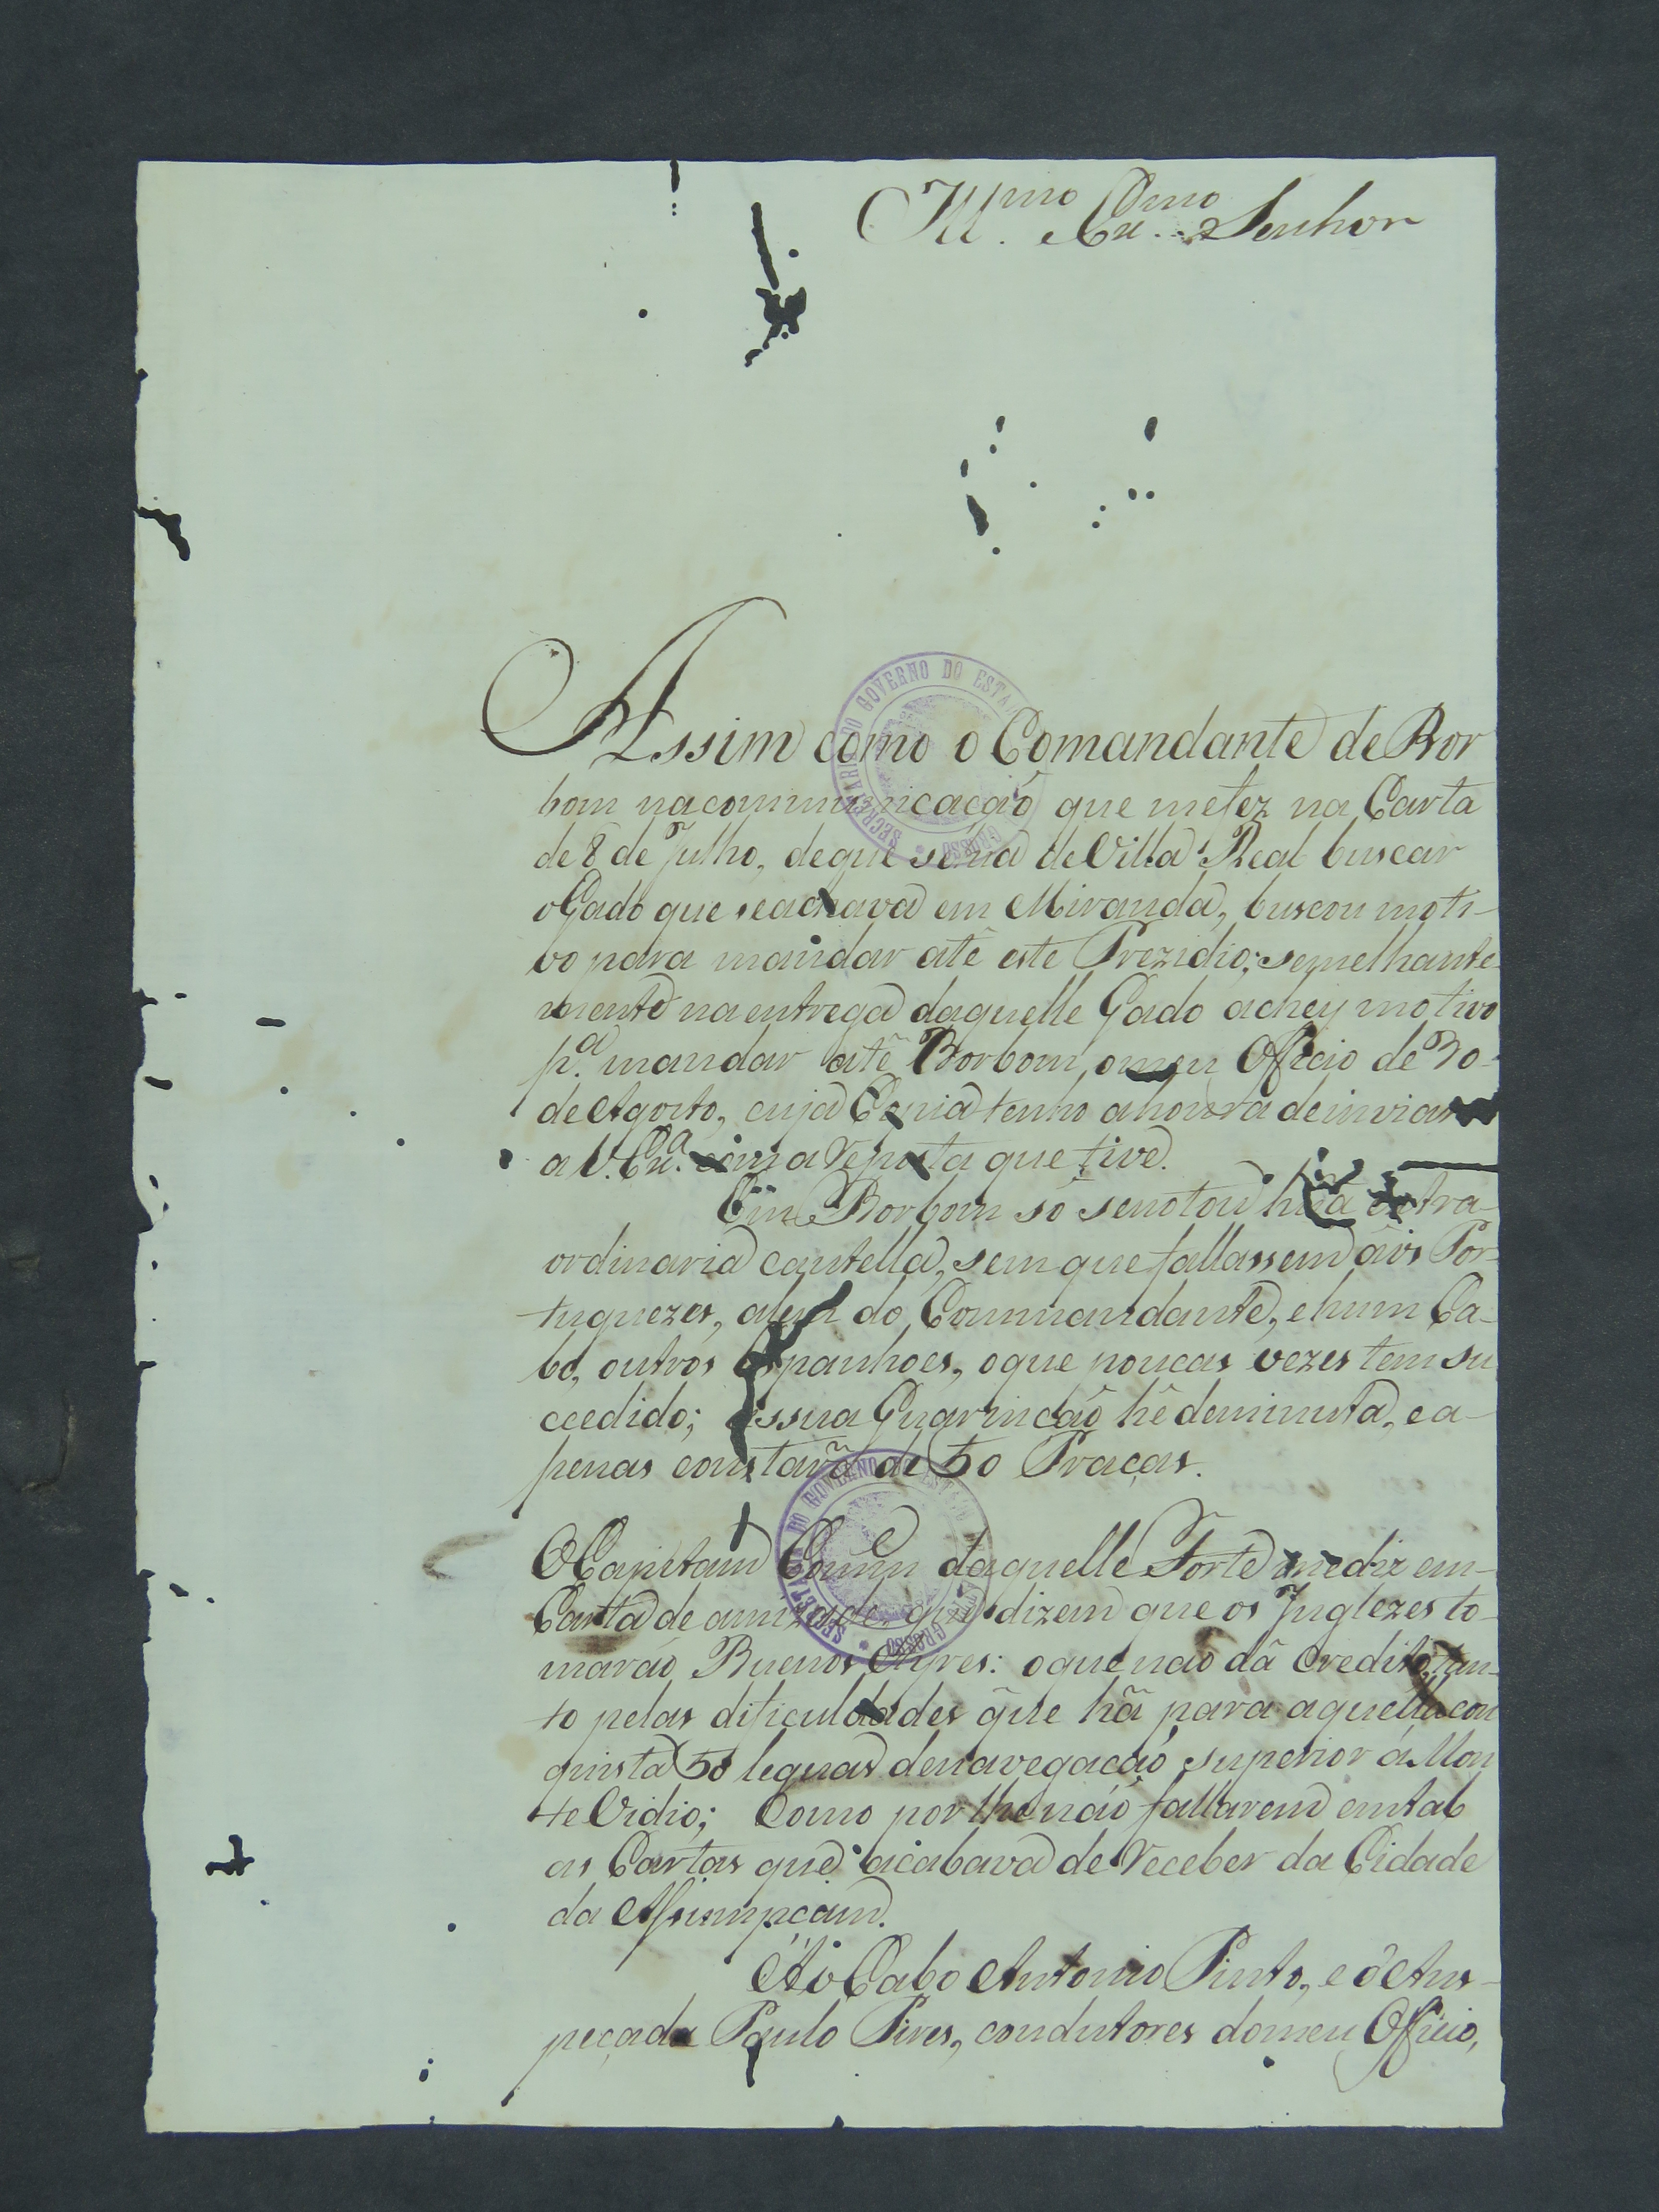 Ill.mo Ex.mo Senhor
Assim como o Comandante de Bor
bom na communicação que me fez na Carta
de 8 de Julho, de que se hia de Villa Real buscar
o Gado que se achava em Miranda, buscou moti-
vo para mandar atê este Prezidio; semelhante-
mente na entrega daquelle Gado achey motivo
p.a mandar atê Borbom, o meu Officio de 30
de Agosto, cuja Copia tenho a honra de inviar
a V. Ex.a com a Reposta que tive.
Em Borbom só se notou hũa extra-
ordinaria cautella, sem que fallassem aos Por-
tuguezes, alem do Commandante, e hum Ca-
bo, outros Espanhoes, o que poucas vezes tem su
ccedido; essua Guarnição hê deminuta, e a-
penas constará de 50 Praças.
O Capitam Comm daquelle Forte me diz em
Carta de amizade, que dizem que os Inglezes to-
marão Buenos Ayres: o que não dá credito, tan-
to pelas dificuldades que há para aquella con
quista 50 leguas de navegação superior á Mon
te Vidio; Como por lhe não fallarem em tal
as Cartas que acabava de Receber da Cidade
da Assumpcam.
Ao Cabo Antonio Pinto, e ô Ans-
peçada Paulo Pires, condutores do meu Officio,
SECRETARIA DO GOVERNO DO ESTADO
GROSSO
SECRETARIA DO GOVERNO DO ESTADO
GROSSO